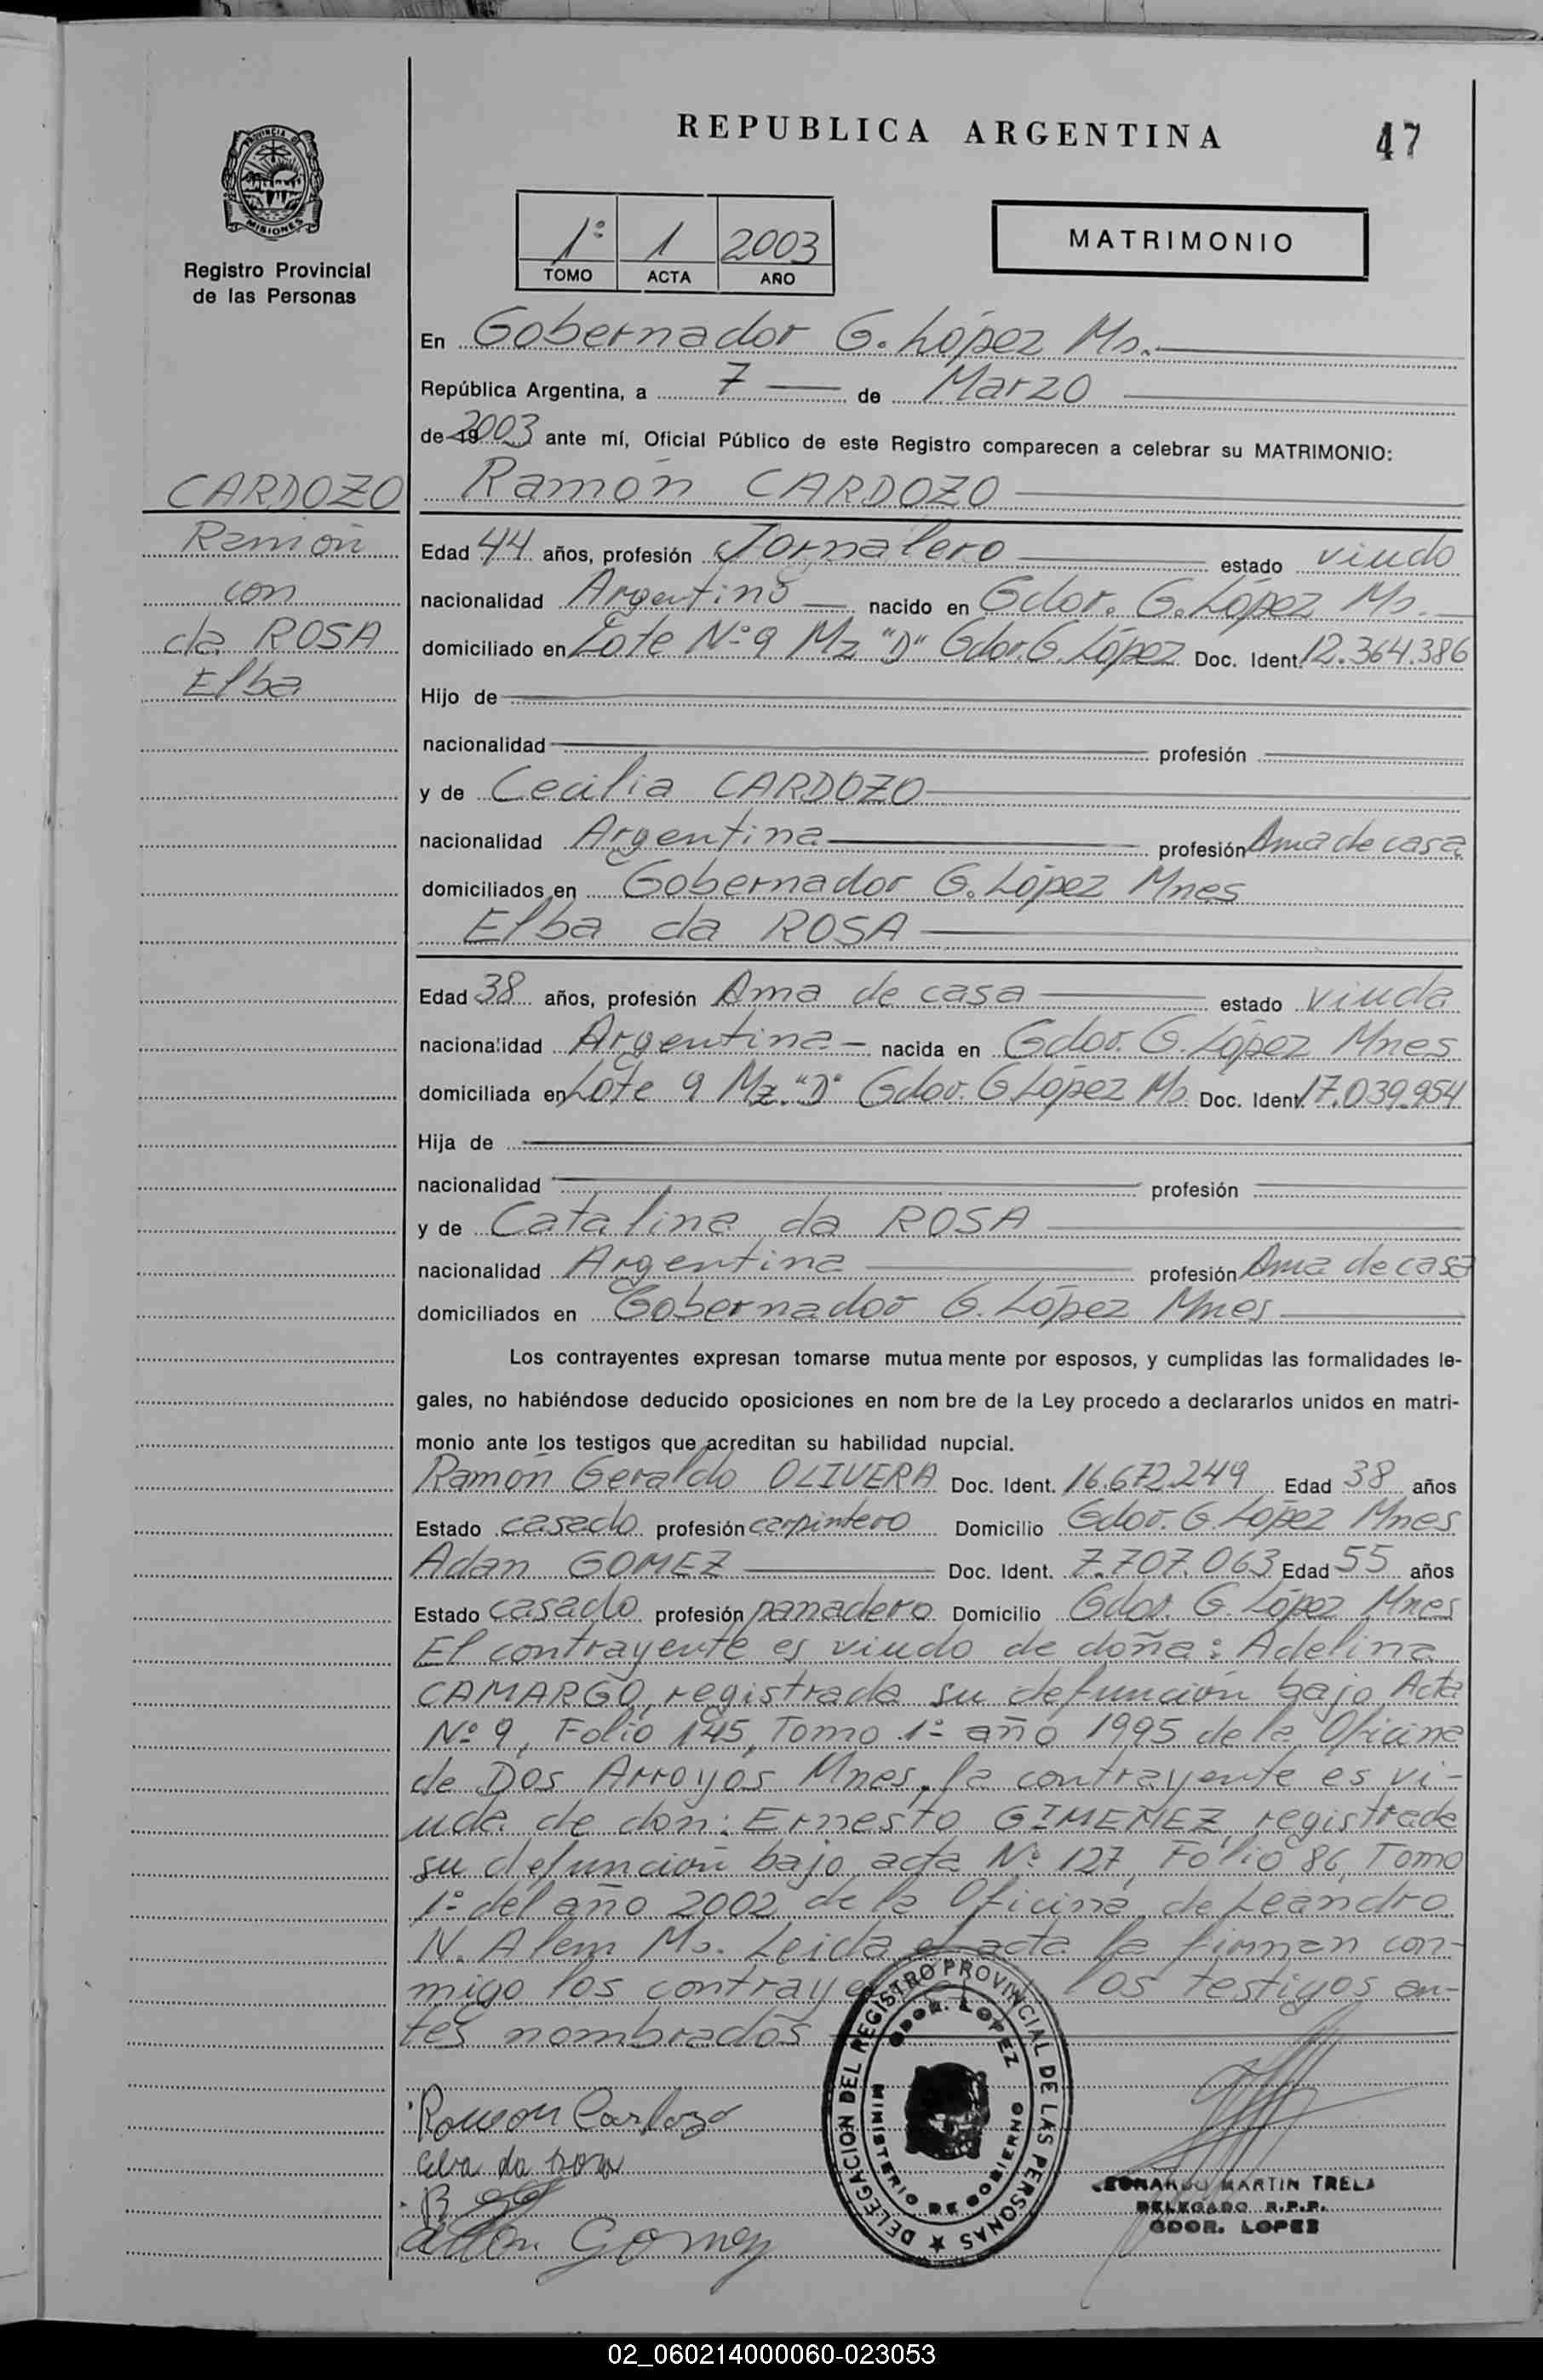 REPUBLICA ARGENTINA
47
PROVINCIA DE
MISIONES
Registro Provincial
de las Personas
1º 1 2003
TOMO ACTA AÑO
MATRIMONIO
En Gobernador G. López Ms.
República Argentina, a 7 de Marzo
de 19 2003 ante mí, Oficial Público de este Registro comparecen a celebrar su MATRIMONIO:
CARDOZO
Ramón
con
da ROSA
Elba
Ramón CARDOZO
Edad 44 años, profesión Jornalero estado viudo
nacionalidad Argentino nacido en Gdor. G. López Ms.
domiciliado en Lote Nº 9 Mz "D" Gdor. G. López Doc. Ident. 12.364.386
Hijo de
nacionalidad profesión
y de Cecilia CARDOZO
nacionalidad Argentina profesión Ama de casa
domiciliados en Gobernador G. López Mnes
Elba da ROSA
Edad 38 años, profesión Ama de casa estado viuda
nacionalidad Argentina nacida en Gdor. G. López Mnes
domiciliada en Lote 9 Mz. "D" Gdor. G López Ms Doc. Ident. 17.039.954
Hija de
nacionalidad profesión
y de Catalina da ROSA
nacionalidad Argentina profesión Ama de casa
domiciliados en Gobernador G. López Mnes
Los contrayentes expresan tomarse mutua mente por esposos, y cumplidas las formalidades le-
gales, no habiéndose deducido oposiciones en nom bre de la Ley procedo a declararlos unidos en matri-
monio ante los testigos que acreditan su habilidad nupcial.
Ramón Geraldo OLIVERA Doc. Ident. 16.672.249 Edad 38 años
Estado casado profesión carpintero Domicilio Gdor. G. López Mnes
Adan GOMEZ Doc. Ident. 7.707.063 Edad 55 años
Estado casado profesión panadero Domicilio Gdor. G. López Mnes
El contrayente es viudo de doña: Adelina
CAMARGO, registrada su defunción bajo Acta
Nº 9, Folio 145, Tomo 1º año 1995 de la Oficina
de Dos Arroyos Mnes, la contrayente es vi-
uda de don: Ernesto GIMENEZ, registrada
su defunción bajo acta Nº 127, Folio 86, Tomo
1º del año 2002 de la Oficina de Leandro
N. Alem Ms. Leida el acta la firman con-
migo los contrayentes los testigos an-
tes nombrados
DELEGACION DEL REGISTRO PROVINCIAL DE LAS PERSONAS
GDOR. LOPEZ
MINISTERIO DE GOBIERNO
Ramon Cardozo
elva da rosa
adan Gomez
MARTIN TRELA
DELEGADO R.P.P.
GDOR. LOPEZ
02_060214000060-023053